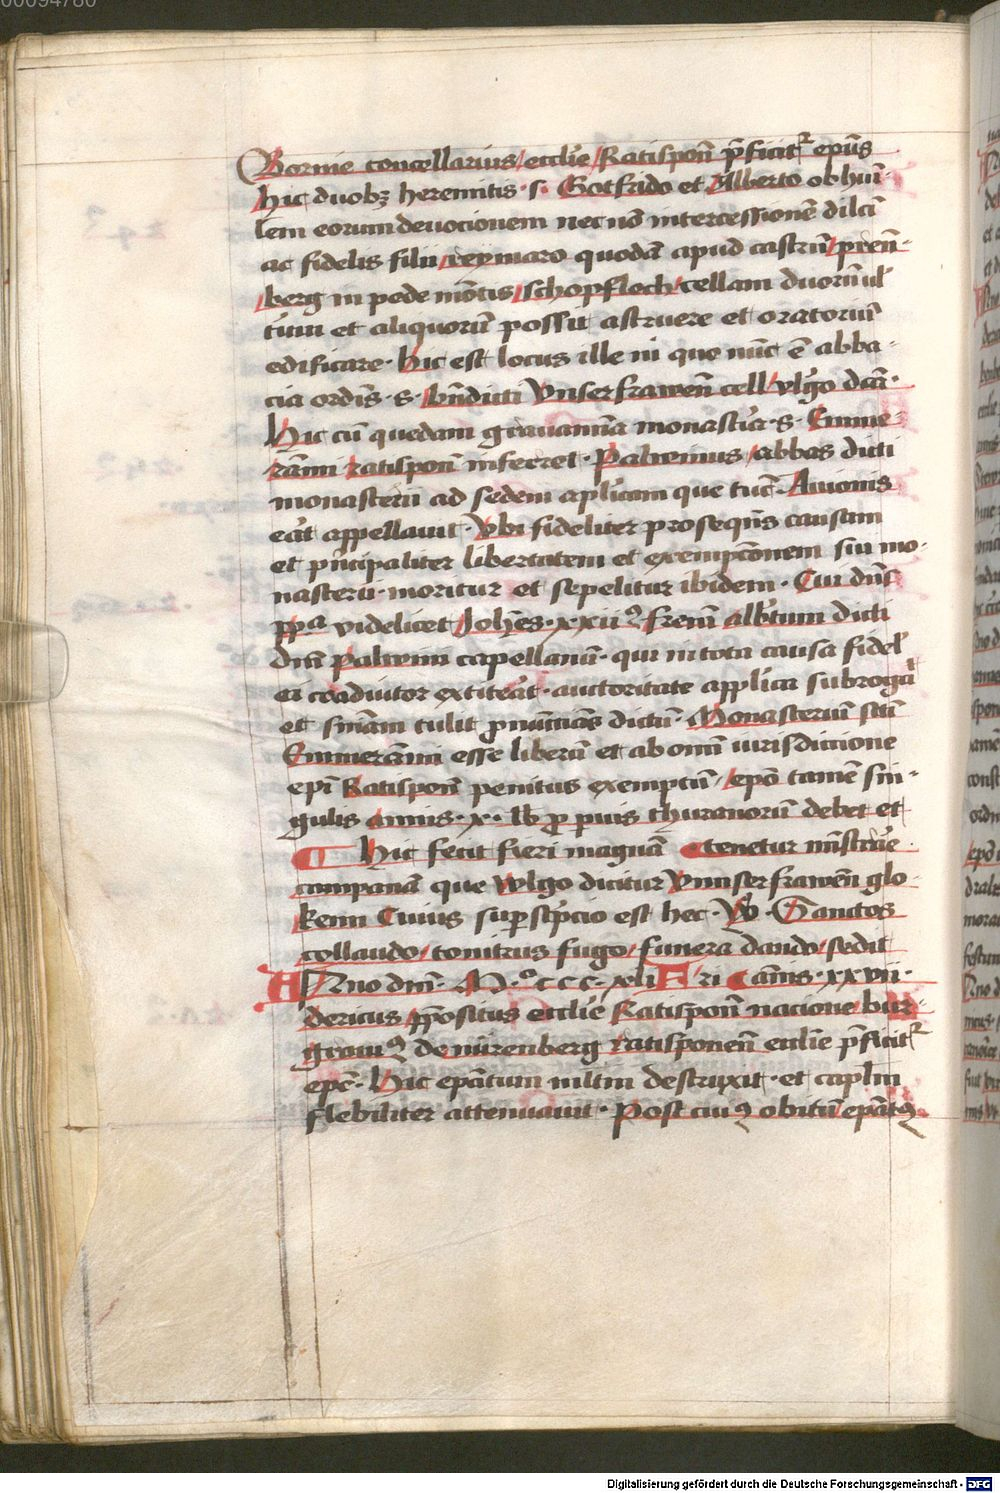 00094780
Bornie concellarius ecclie Ratisponn̄ p̄ficit᷑ ep̄us
Hic duobꝫ heremitis · s · Gotfrido et Alberto ob hūi-
lem eorum deuocionem nec nō intercessionē dilcī
ac fidelis filii reymaro quodā apud castrū prenn̄-
berg in pede mōtis schopfloch cellam duorū ul
tium et aliquorū possit astruere et oratoriū
edificare · Hic est locus ille in quo nūc ē abba-
cia ordīs · S · bn̄dicti Vnserfrawen̄ cell vlg̓o dcā ·
Hic cū quedam grauamīa monast̓ia · S · Emme-
rāmi ratisponn̄ inferret · Palwinus abbas dicti
monasterii ad sedem ap̄licam que tūc Auionis
eāt appellauit · Vbi fideliter prosequēs causam
et p̄ncipaliter libertatem et exempc̄onem sui mo-
nasterii · moritur et sepelitur ibidem · Cui dn̄s
pp̄a videlicet Joh̄es · xxii ꝰ frem̄ alb̄tum dicti
dn̄i palwini capellanū · qui in tota causa fidel̓
ei coadiutor extiteāt · auctoritate app̄lica subrogāt
et sn̄iam tulit p̄nūcians dictū · Monasteriū scī
Emmerāmi esse liberū et ab om̄i iurisdictione
epī Ratisponn̄ penitus exemptū · epō tamē sin-
gulis annis · x · lb̄ ꝓ puis thuranorū debet et
¶ Hic fecit fieri magnā ¶ tenetur mīstraīe
campanā que wlgo dicitur Vnnserfrawēn glo-
kenn Cuius sup̄scp̄cio est hec · Vꝰ · Sanctos
collaudo / tonitrus fugo / funera dando / sedit
ANno dn̄i · M · ° ccc · xli Fri cānis · xxvii ·
dericus p̄positus ecclie Ratisponn̄ nacione bur-
grauiꝰ de nurenberg ratisponen̄ ecclie p̄ficit᷑
epc̄ · Hic ep̄atum multū destruxit · et cap̄lm
flebiliter attenuauit · Post cuiꝰ obitū ep̄atꝰ
Digitalisierung gefördert durch die Deutsche Forschungsgemeinschaft - DFG